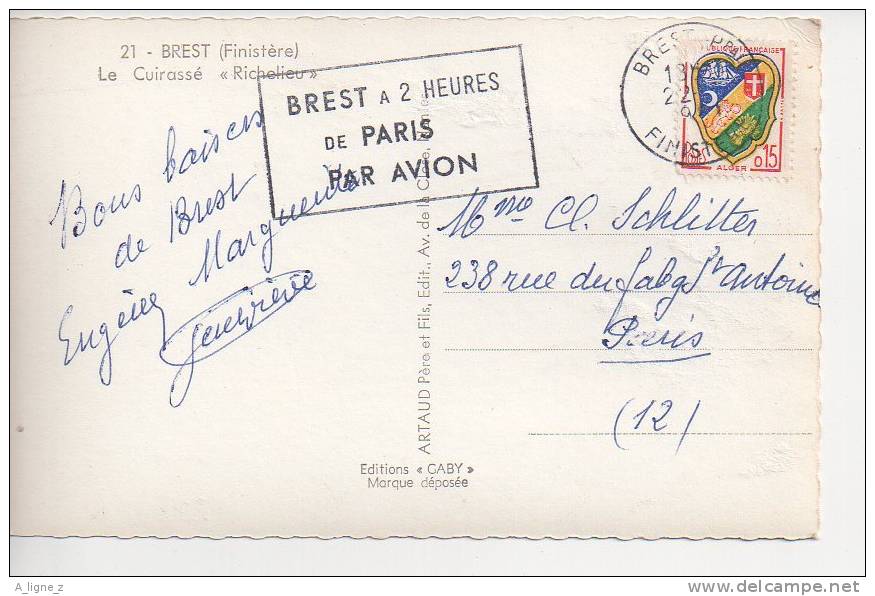 21 - BREST (Finistère)
Le Cuirassé « Richelieu »
BREST A 2 HEURES
DE PARIS
PAR AVION
BREST
18
22
FINIST
RÉPUBLIQUE FRANÇAISE
POSTES
ALGER
0,15
Bons baisers
de Brest
Eugénie Marguerite
Geneviève
Mme Cl. Schlitter
238 rue du Fabg St Antoine
Paris
(12)
ARTAUD Père et Fils, Edit., Av. de la Close, Nantes
Editions « GABY »
Marque déposée
A_ligne_z
delcampe.net